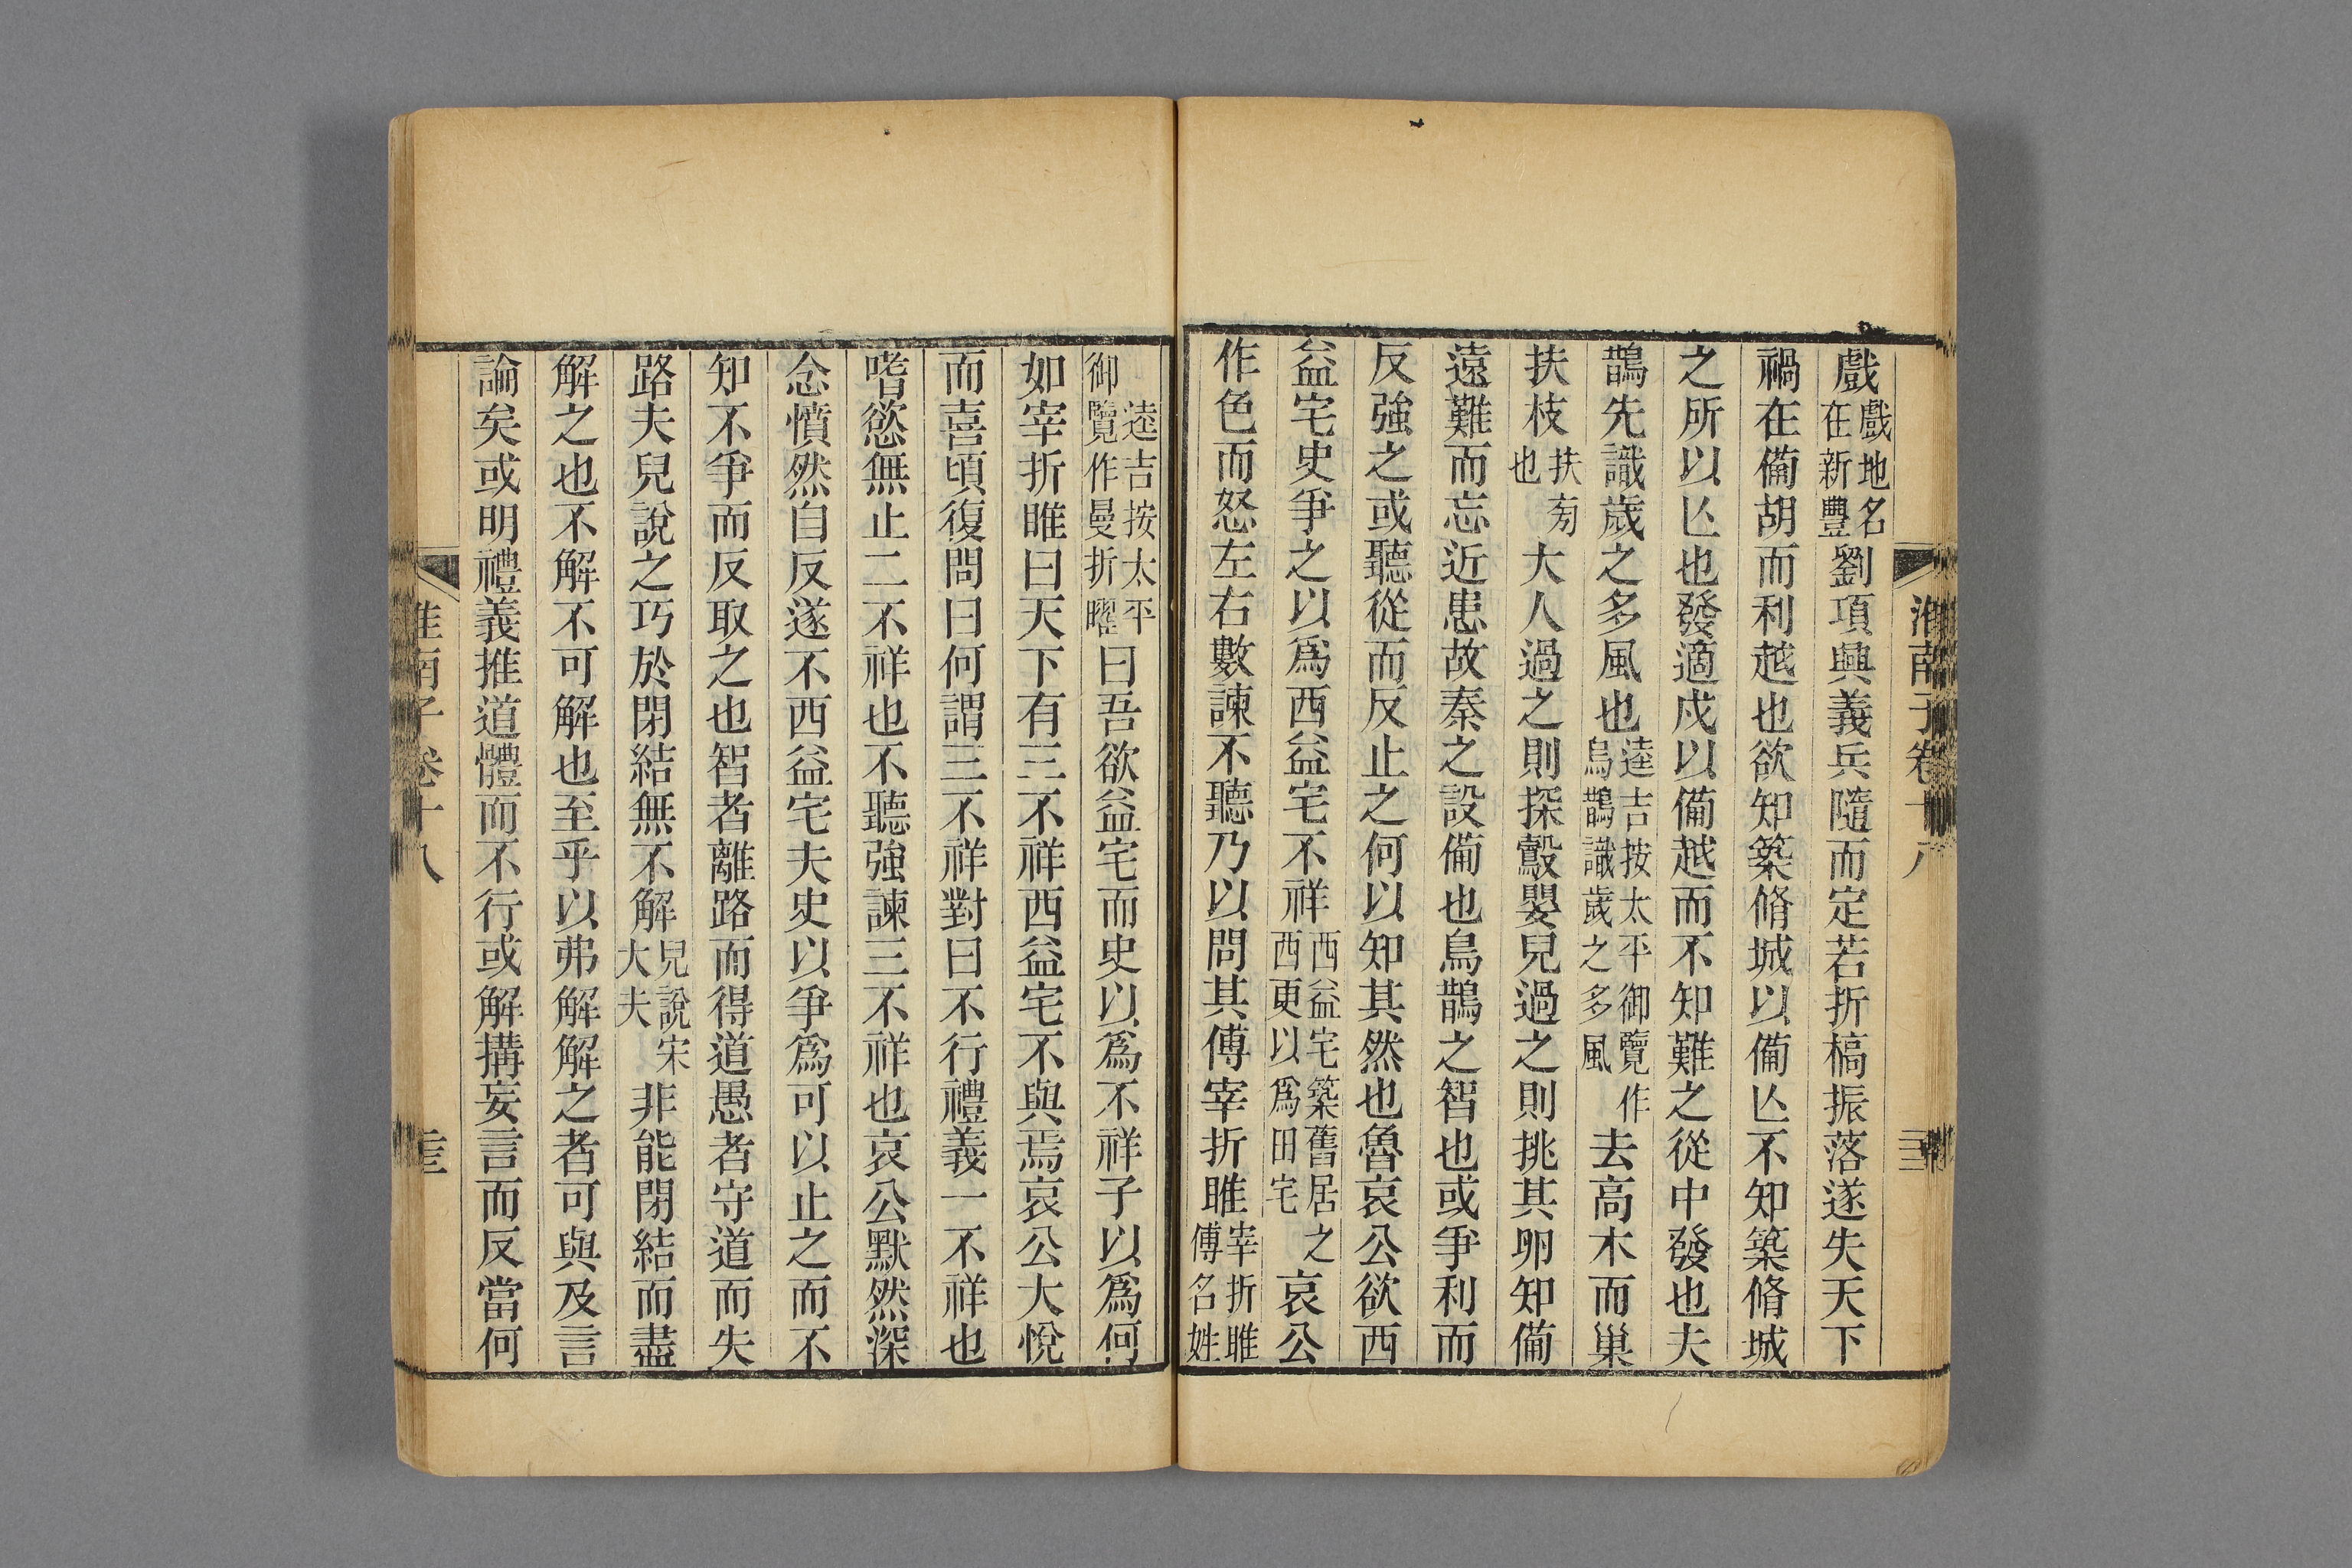 戲戲地名在新豐劉項興義兵隨而定若折槁振落遂失天下
禍在僃胡而利越也欲知築脩城以僃亾不知築脩城
之所以亾也發適戍以僃越而不知難之從中發也夫
鵲先識歲之多風也逵吉按太平御覽作烏鵲識歲之多風去高木而巢
扶枝扶菊也大人過之則探鷇嬰兒過之則挑其卵知僃
遠難而忘近患故秦之設僃也烏鵲之智也或爭利而
反強之或聽從而反止之何以知其然也魯哀公欲西
益宅史爭之以爲西益宅不祥西益宅築舊居之西更以爲田宅哀公
作色而怒左右數諫不聽乃以問其傅宰折睢宰折睢傅名姓
逵吉按太平御覽作曼折曜曰吾欲益宅而史以爲不祥子以爲何
如宰折睢曰天下有三不祥西益宅不與焉哀公大悅
而喜頃復問曰何謂三不祥對曰不行禮義一不祥也
嗜慾無止二不祥也不聽強諫三不祥也哀公默然深
念憤然自反遂不西益宅夫史以爭爲可以止之而不
知不爭而反取之也智者離路而得道愚者守道而失
路夫兒說之巧於閉結無不解兒說宋大夫非能閉結而盡
解之也不解不可解也至乎以弗解解之者可與及言
論矣或明禮義推道體而不行或解搆妄言而反當何
淮南子卷十八
淮南子卷十八